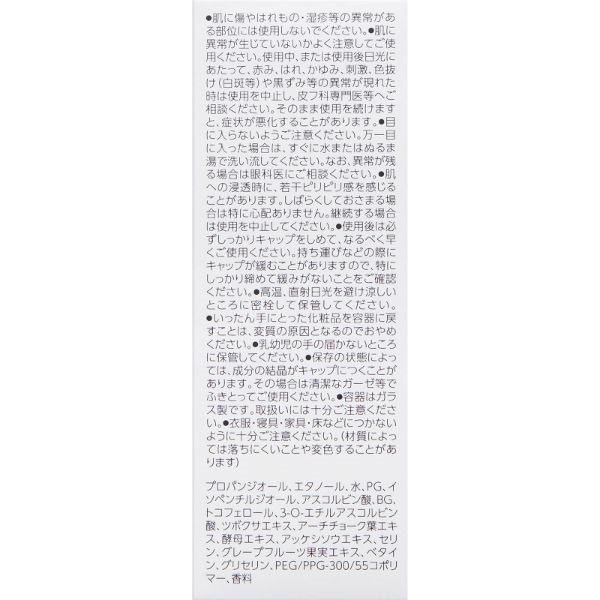 ●肌に傷やはれもの・湿疹等の異常があ
る部位には使用しないでください。●肌に
異常が生じていないかよく注意してご使
用ください。使用中、または使用後日光に
あたって、赤み、はれ、かゆみ、刺激、色抜
け(白斑等)や黒ずみ等の異常が現れた
時は使用を中止し、皮フ科専門医等へご
相談ください。そのまま使用を続けますと
、症状が悪化することがあります。●目
に入らないようご注意ください。万一目
に入った場合は、すぐに水またはぬるま
湯で洗い流してください。なお、異常が残
る場合は眼科医にご相談ください。●肌
への浸透時に、若干ピリピリ感を感じる
ことがあります。しばらくしておさまる場
合は特に心配ありません。継続する場合
は使用を中止してください。●使用後は必
ずしっかりキャップをしめて、なるべく早
くご使用ください。持ち運びなどの際に
キャップが緩むことがありますので、特に
しっかり締めて緩みがないことをご確認
ください。●高温、直射日光を避け涼しい
ところに密栓して保管してください。
●いったん手にとった化粧品を容器に戻
すことは、変質の原因となるのでおやめ
ください。●乳幼児の手の届かないところ
に保管してください。●保存の状態によっ
ては、成分の結晶がキャップにつくことが
あります。その場合は清潔なガーゼ等で
ふきとってご使用ください。●容器はガラ
ス製です。取扱いには十分ご注意くださ
い。●衣服・寝具・家具・床などにつかない
ように十分ご注意ください。(材質によっ
ては落ちにくいことや変色することがあ
ります)
プロパンジオール、エタノール、水、PG、イ
ソペンチルジオール、アスコルビン酸、BG、
トコフェロール、3-O-エチルアスコルビン
酸、ツボクサエキス、アーチチョーク葉エキ
ス、酵母エキス、アッケシソウエキス、セリ
ン、グレープフルーツ果実エキス、ベタイ
ン、グリセリン、PEG/PPG-300/55コポリ
マー、香料